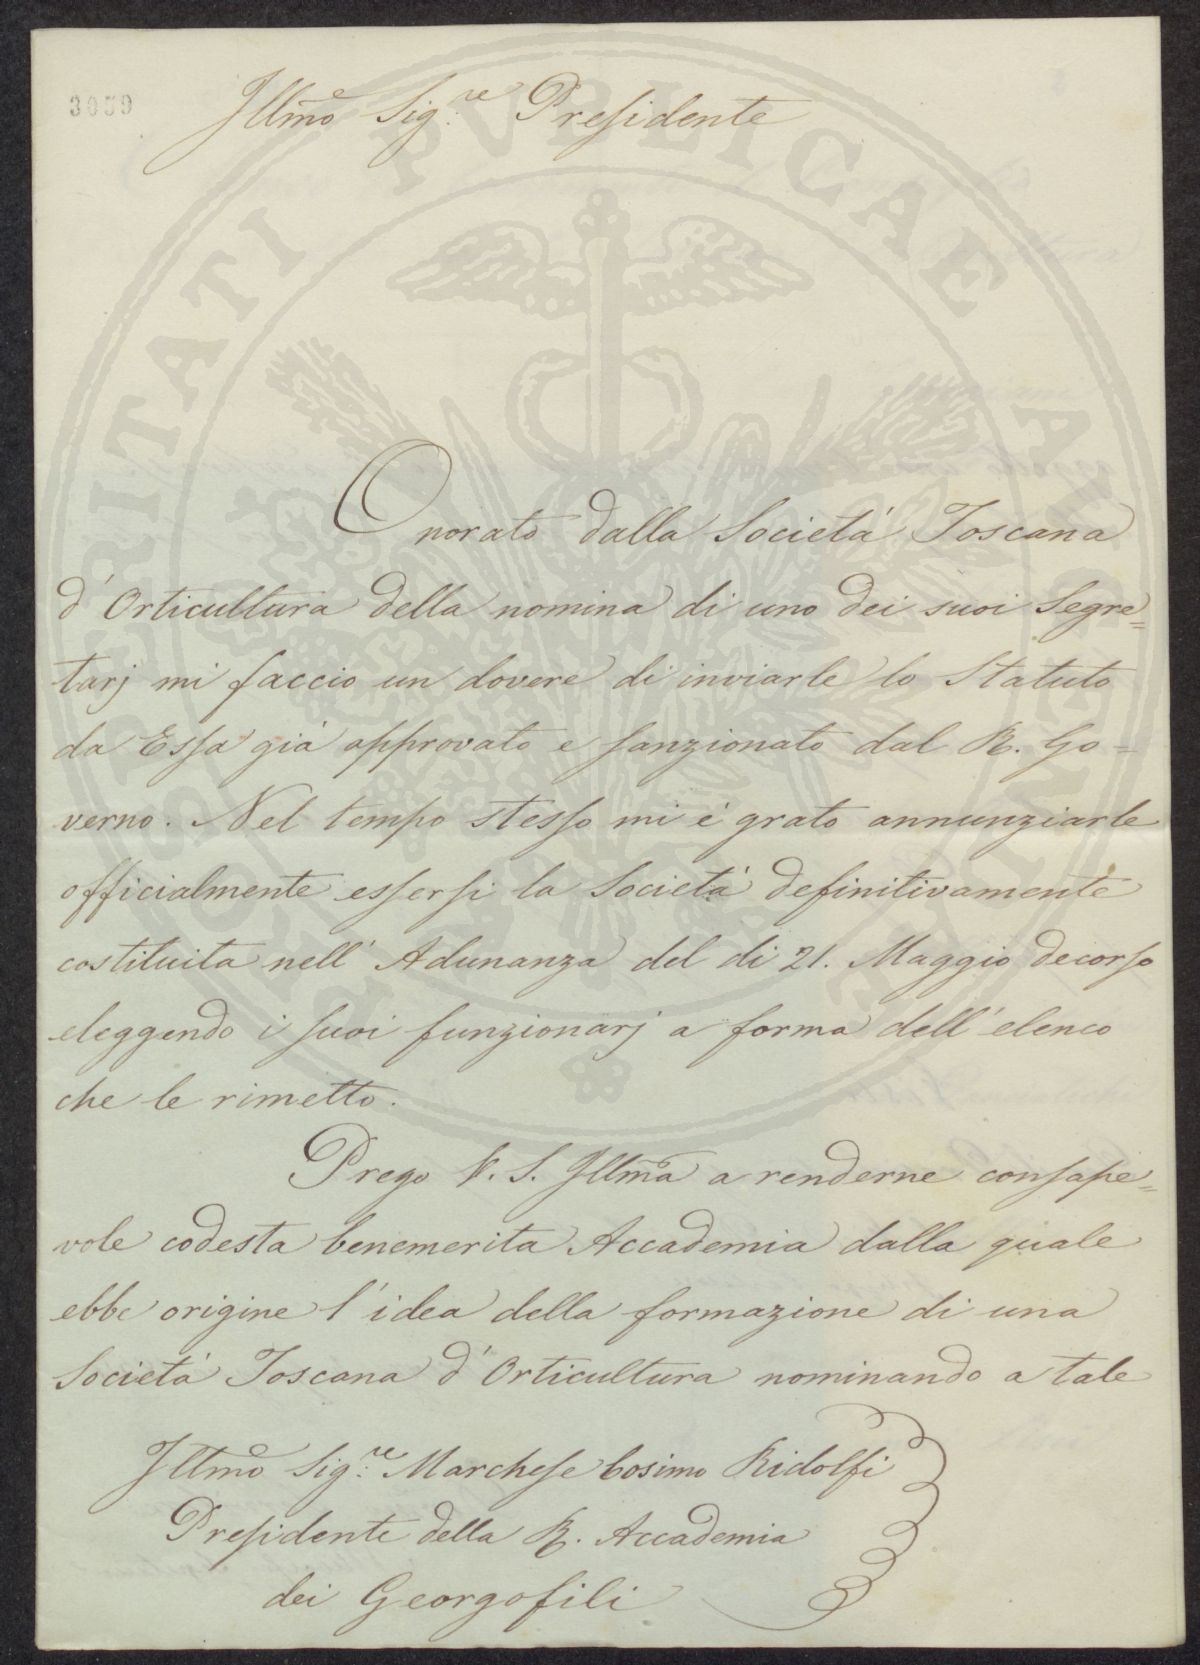 3059
Illmo Sig.re Presidente
PROSPERITATI PVBLICAE AVGENDAE
Onorato dalla Società Toscana
d'Orticultura della nomina di uno dei suoi Segre=
tarj mi faccio un dovere di inviarle lo Statuto
da Essa già approvato e sanzionato dal R. Go=
verno. Nel tempo stesso mi è grato annunziarle
officialmente essersi la Società definitivamente
costituita nell'Adunanza del dì 21. Maggio decorso
eleggendo i suoi funzionarj a forma dell'elenco
che le rimetto.
Prego V. S. Illma a renderne consape=
vole codesta benemerita Accademia dalla quale
ebbe origine l'idea della formazione di una
Società Toscana d'Orticultura nominando a tale
Illmo Sig.re Marchese Cosimo Ridolfi
Presidente della R. Accademia
dei Georgofili